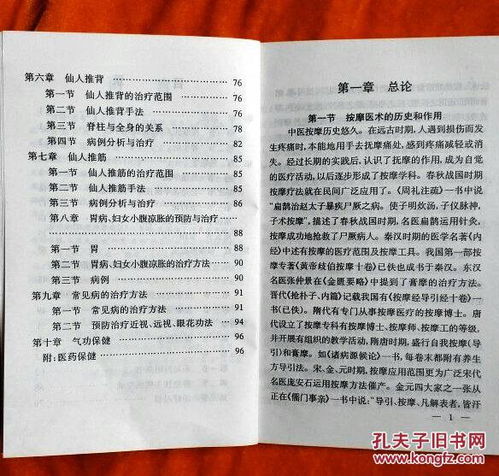 第六章 仙人推背 76
第一节 仙人推背的治疗范围 76
第二节 仙人推背手法 76
第三节 脊柱与全身的关系 78
第四节 病例分析与治疗 82
第七章 仙人推筋 85
第一节 仙人推筋的治疗范围 85
第二节 仙人推筋手法 85
第三节 病例分析与治疗 85
第八章 胃病、妇女小腹凉胀的预防与治疗
88
第一节 胃 88
第二节 胃病、妇女小腹凉胀的治疗方法
第三节 病例 90
第九章 常见病的治疗方法 91
第一节 常见病的治疗方法 91
第二节 预防治疗近视、远视、眼花功法 94
第十章 气功保健 96
附:医药保健 96
第一章 总论
第一节 按摩医术的历史和作用
中医按摩历史悠久。在远古时期,人遇到损伤而发
生疼痛时,本能地用手去抚摩痛处,感到疼痛减轻或消
失。经过长期的实践后,认识了抚摩的作用,成为自觉
的医疗活动,以后逐步形成了按摩学科。春秋战国时期,
按摩疗法就在民间广泛应用了。《周礼注疏》一书中说
“扁鹊治赵太子暴疾尸厥之病。使子明炊汤,子仪脉神,
子术按摩”,描述了春秋战国时期,名医扁鹊运用针灸,
按摩成功地抢救了尸厥病人。秦汉时期的医学名著《内
经》中述有按摩的医疗范围及按摩工具。我国第一部按
摩专著《黄帝歧伯按摩十卷》已佚也成书于秦汉。东汉
名医张仲景在《金匮要略》中提到了膏摩的治疗方法。
晋代《抢朴子、内篇》记载我国有《按摩经导引经十卷》一
书(已佚)。隋代有专门从事按摩医疗的按摩博士。唐
代设立了按摩专科有按摩博士、按摩师、按摩工的等级,
并开展有组织的教学活动,隋唐时期,盛行自我按摩(导
引)和膏摩。如《诸病源候论》一书,每卷末都附有养生
方导引法。宋、金、元时期,按摩应用范围更为广泛宋代
名医庞安石运用按摩方法催产。金元四大家之一张从
正在《儒门事亲》一书中说:“导引、按摩、凡解表者,皆汗
— 1 —
孔夫子旧书网